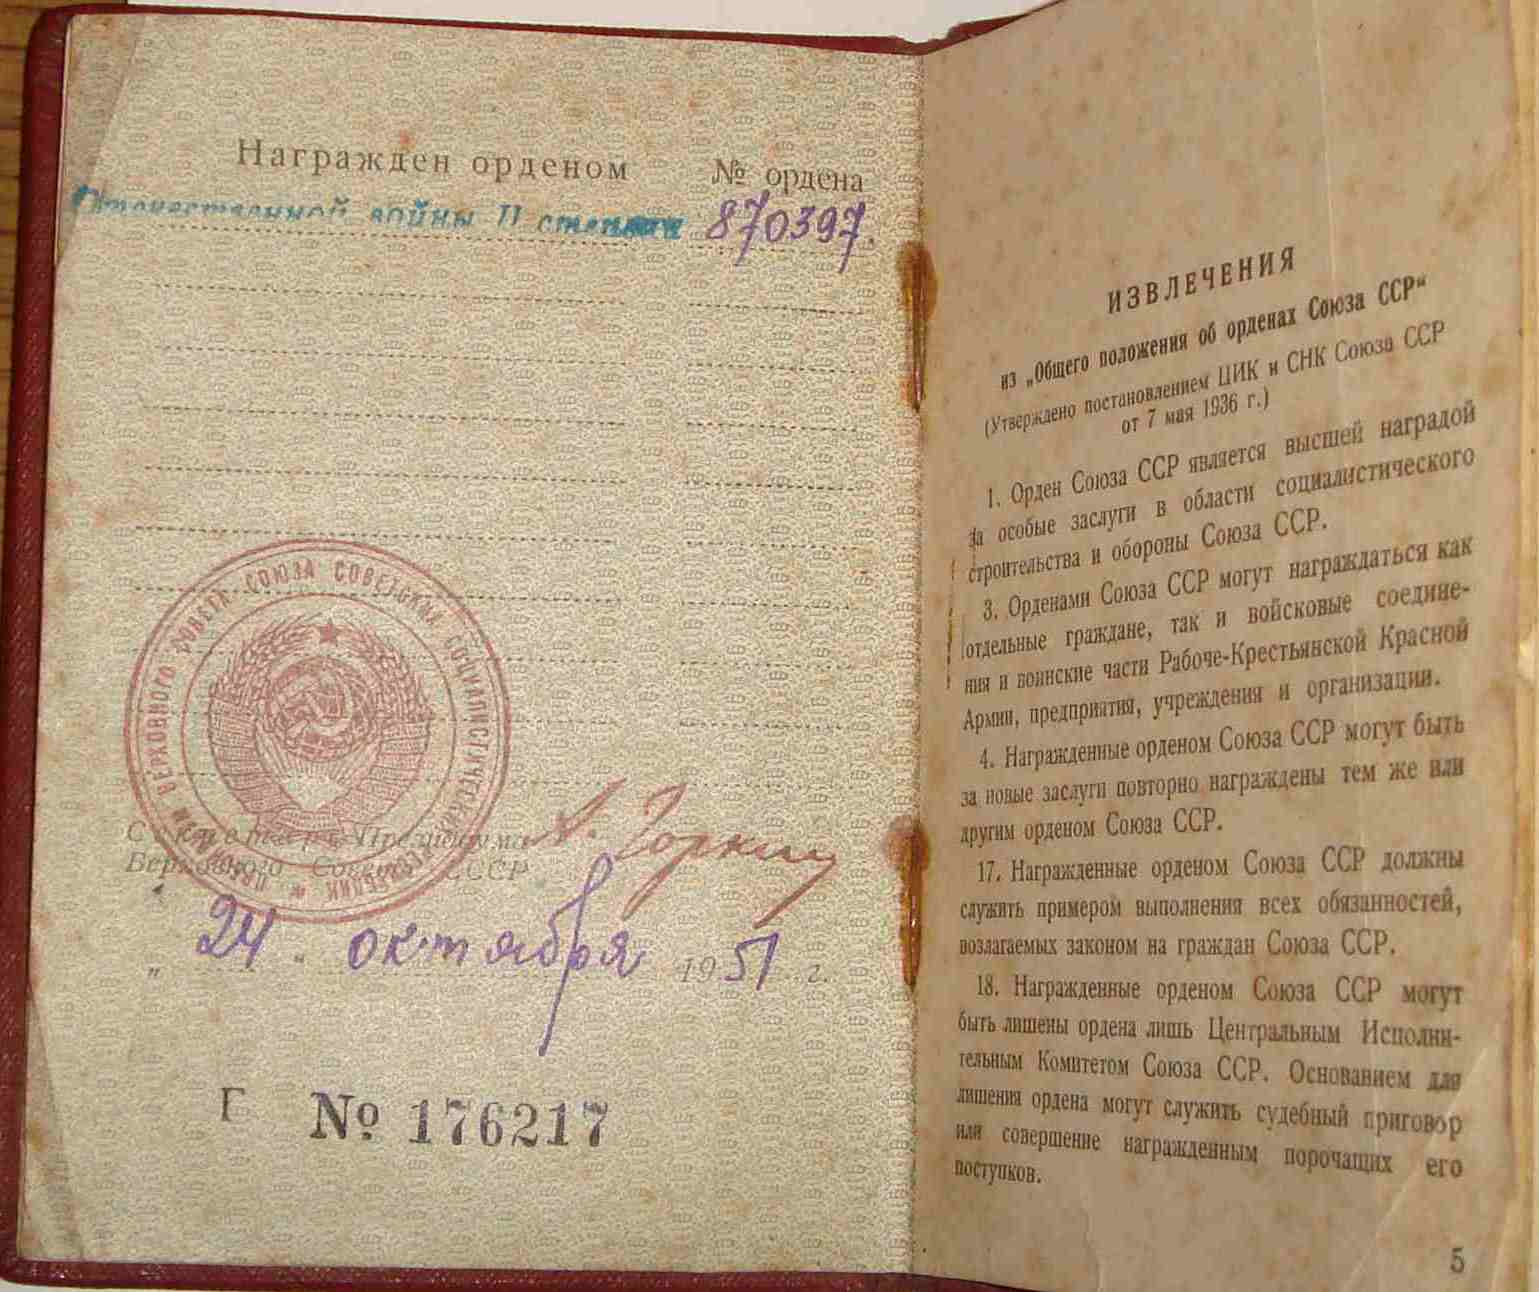 Награжден орденом № ордена
Отечественной войны II степени 870397.
ПРЕЗИДИУМ ВЕРХОВНОГО СОВЕТА СОЮЗА СОВЕТСКИХ СОЦИАЛИСТИЧЕСКИХ РЕСПУБЛИК
Секретарь Президиума
Верховного Совета СССР
А. Горкин
„ 24 “ октября 1951 г.
Г № 176217
ИЗВЛЕЧЕНИЯ
из „Общего положения об орденах Союза ССР“
(Утверждено постановлением ЦИК и СНК Союза ССР
от 7 мая 1936 г.)
1. Орден Союза ССР является высшей наградой
за особые заслуги в области социалистического
строительства и обороны Союза ССР.
3. Орденами Союза ССР могут награждаться как
отдельные граждане, так и войсковые соедине-
ния и воинские части Рабоче-Крестьянской Красной
Армии, предприятия, учреждения и организации.
4. Награжденные орденом Союза ССР могут быть
за новые заслуги повторно награждены тем же или
другим орденом Союза ССР.
17. Награжденные орденом Союза ССР должны
служить примером выполнения всех обязанностей,
возлагаемых законом на граждан Союза ССР.
18. Награжденные орденом Союза ССР могут
быть лишены ордена лишь Центральным Исполни-
тельным Комитетом Союза ССР. Основанием для
лишения ордена могут служить судебный приговор
или совершение награжденным порочащих его
поступков.
5